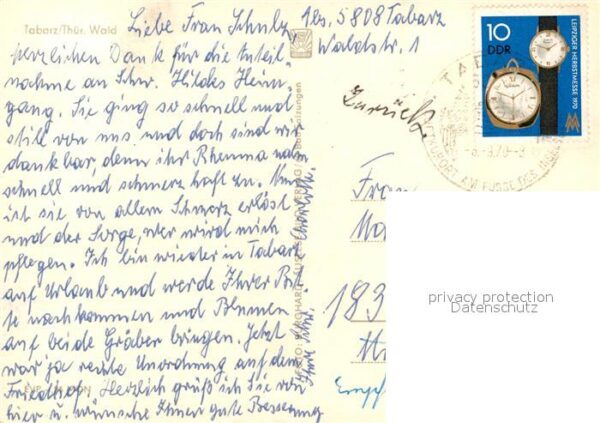 Tabarz/Thür. Wald
Liebe Frau Schulz,
z. Zs. 5808 Tabarz
Waldstr. 1
herzlichen Dank für die Anteil-
nahme an Schw. Hildes Heim-
gang. Sie ging so schnell und
still von uns und doch sind wir
dankbar, denn ihr Rheuma nahm
schnell und schmerzhaft zu. Nun
ist sie von allem Schmerz erlöst
und der Sorge, wer wird mich
pflegen. Ich bin wieder in Tabarz
auf Urlaub und werde Ihrer Bit-
te nachkommen und Blumen
auf beide Gräber bringen. Jetzt
war ja rechte Unordnung auf dem
Friedhof. Herzlich grüß ich Sie von
hier u. wünsche Ihnen gute Besserung
Ihre Schw.
Charlotte
Zurück
10
DDR
LEIPZIGER HERBSTMESSE 1970
Frau
183
privacy protection
Datenschutz